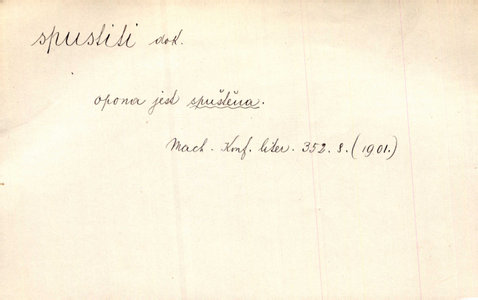 spustiti dok.
opona jest spuštěna.
Mach. Konf. liter. 352. 8. (1901.)